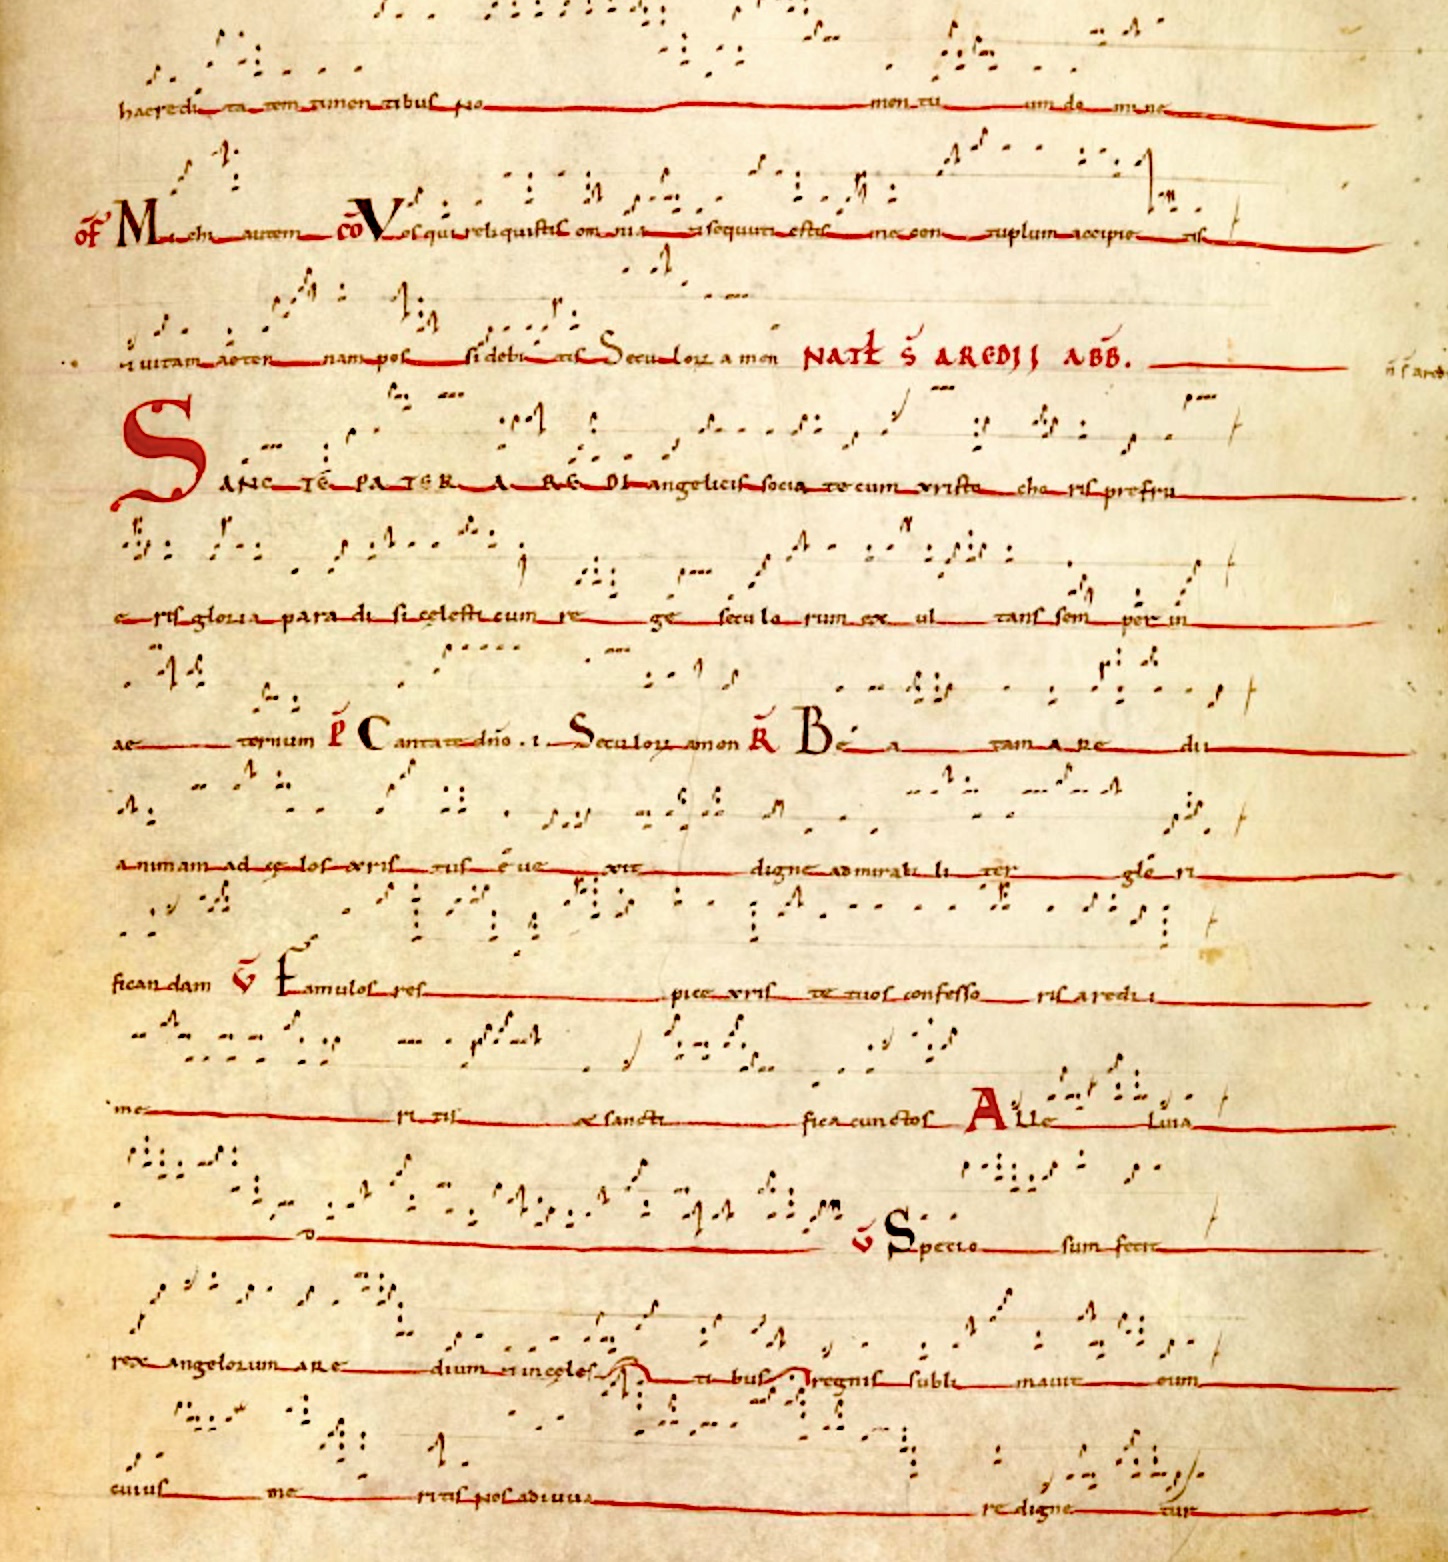 haeredi ta tem timen tibus no men tu um do mi ne
of Michi autem co Vos qui reliquistis om nia & secuti estis me cen tuplum accipie tis
& vitam aeter nam pos si debi tis Seculorz amen NATL S AREDII ABB.
SANC TE PATER A RE DI angelicis socia te cum xristo cho ris prefru
e ris gloria para di si celesti cum re ge seculo rum ex ul tans sem per in
ae ternum P Cantate dno . i . Seculorz amen R Be a tam A Re dii
animam ad ce los xris tus e ue xit digne admirabi li ter glo ri
ficandam V Famulos res pice xris te tuos confesso ris aredi i
me ri tis & sancti fica cunctos Alle luia
V Specio sum fecit
rex angelorum are dium & in celes ti bus regnis subli mauit eum
cuius me ritis nos adiuua re digne tur